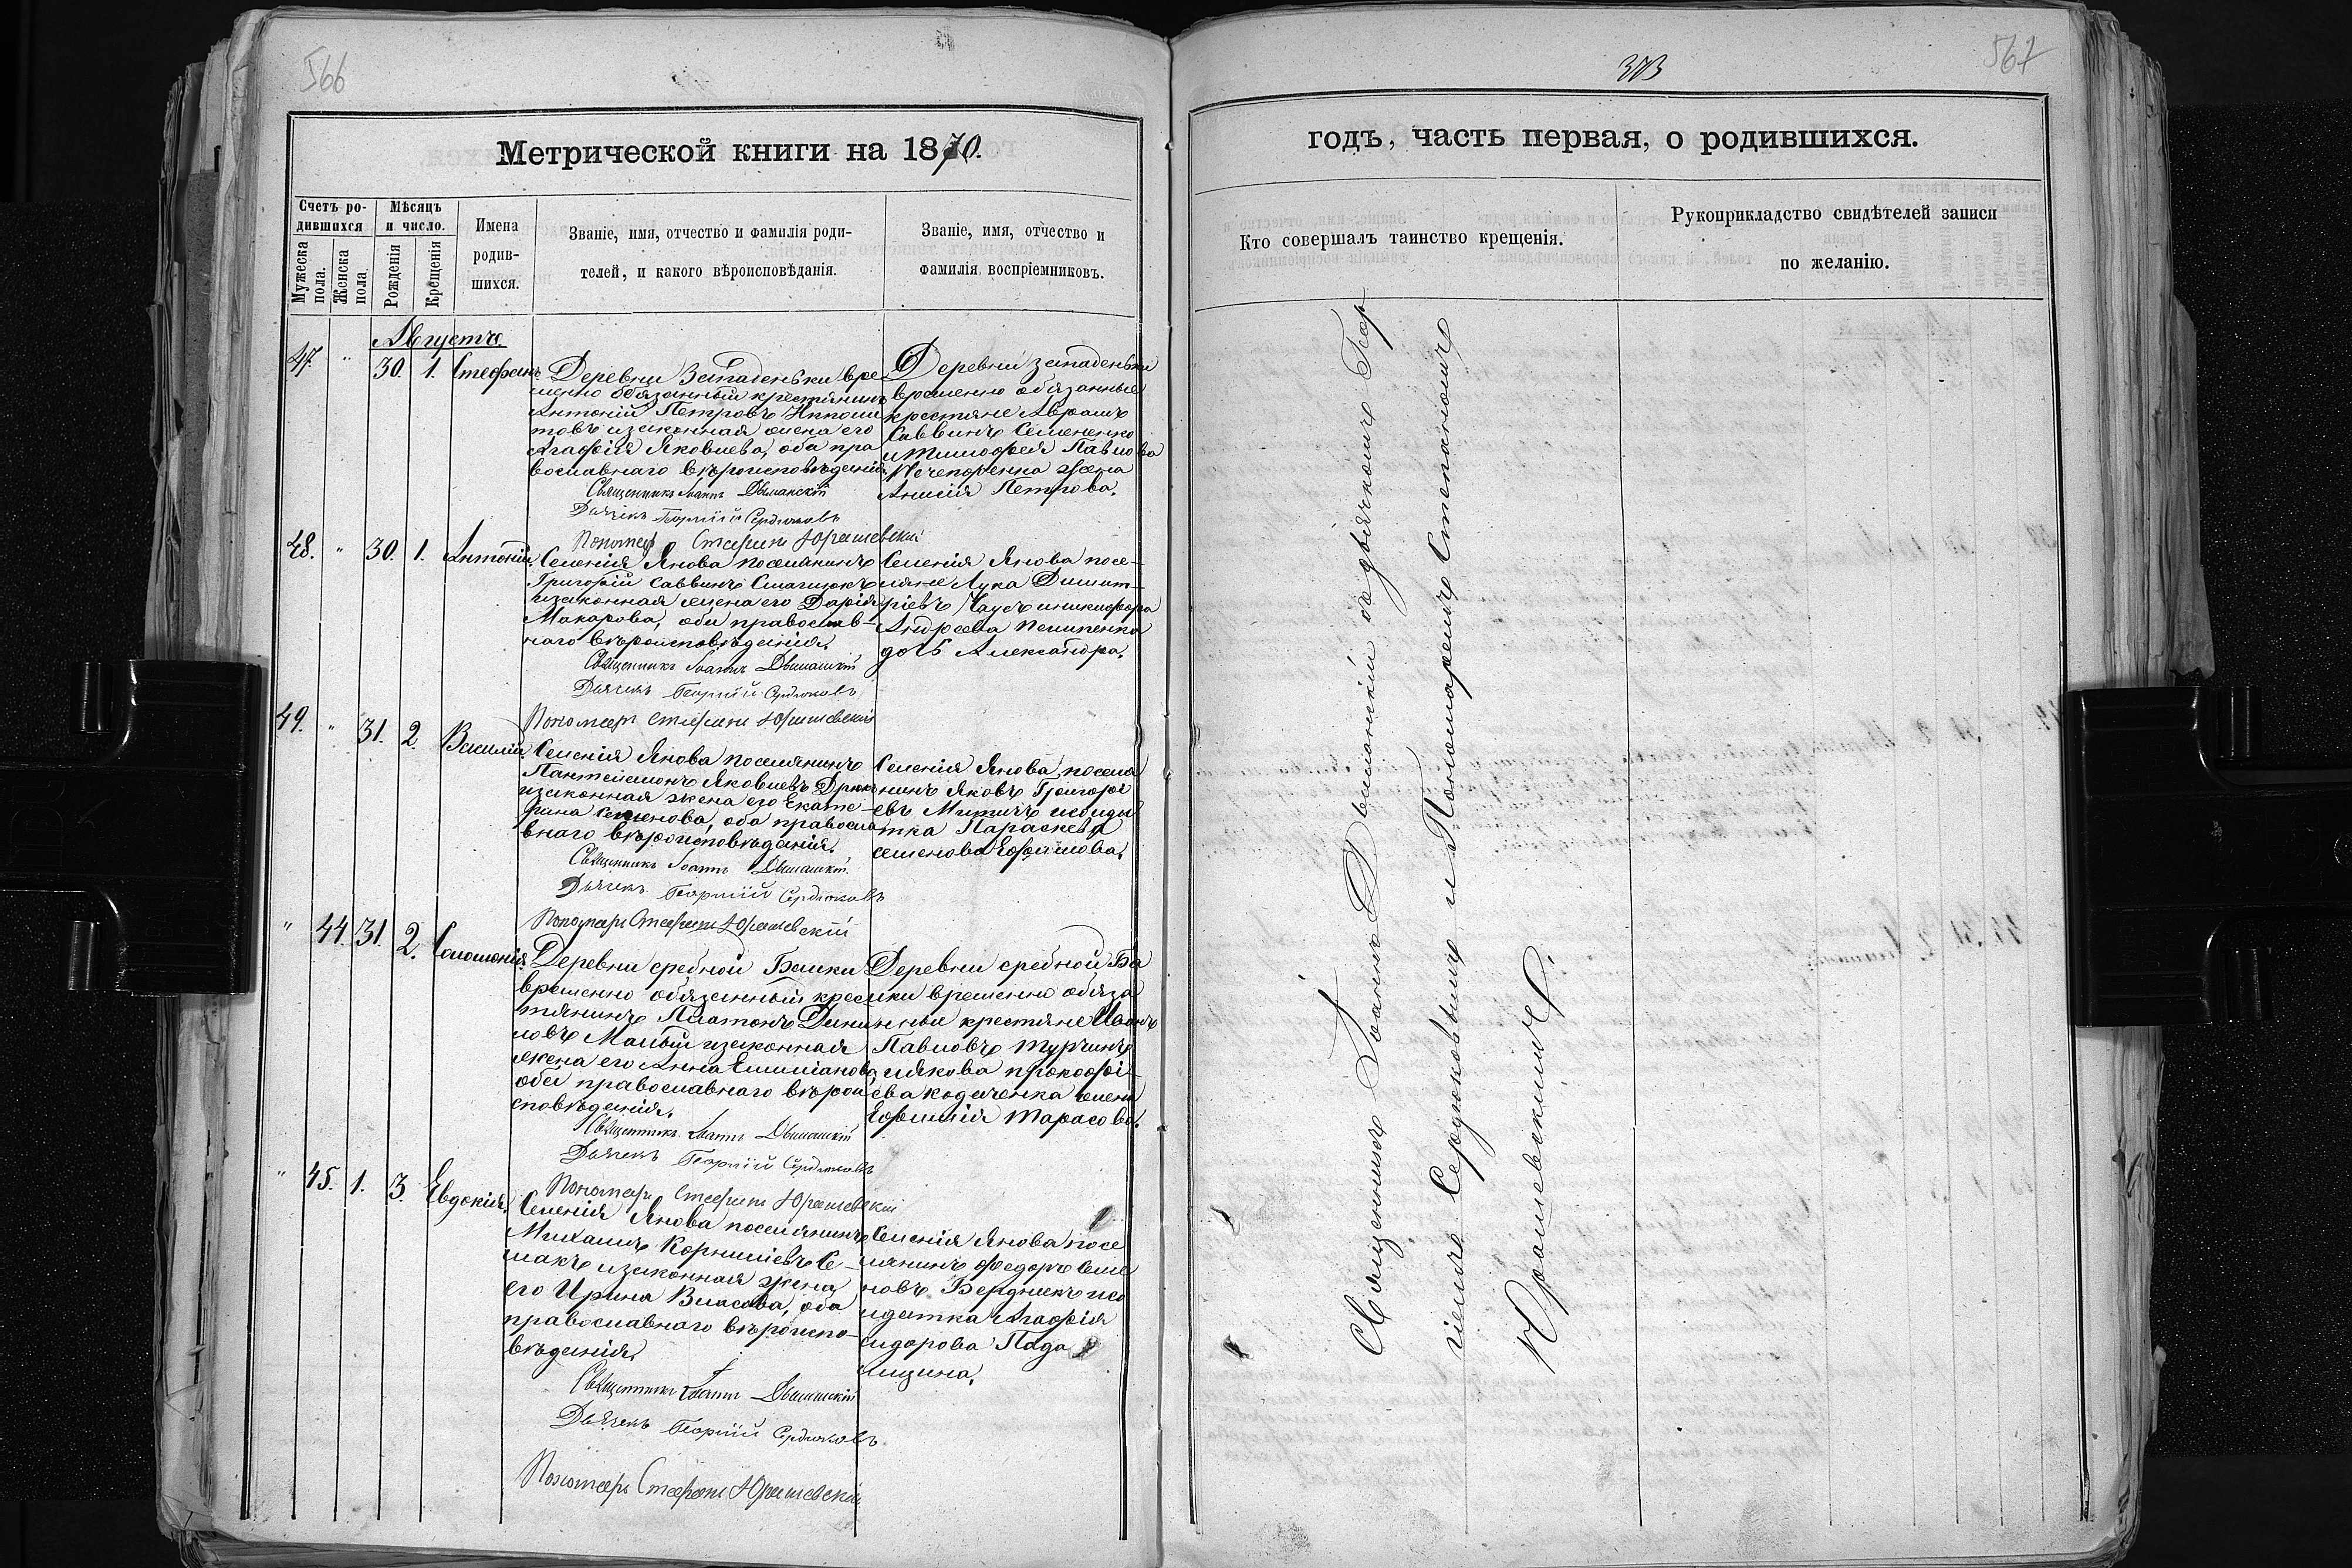 566
Метрической книги на 1870.
Счетъ ро-
дившихся
Мѣсяцъ
и число.
Мужеска
пола.
Женска
пола.
Рожденія
Крещенія
Имена
родив-
шихся.
Званіе, имя, отчество и фамилія роди-
телей, и какого вѣроисповѣданія.
Званіе, имя, отчество и
фамилія воспріемниковъ.
Августъ
47. " 30. 1. Стефанъ
Деревни Западеньки вре
менно обязанный крестьянинъ
Антоній Петровъ Ипполи
товъ изаконная жена его
Агафія Яковлева, оба пра
вославнаго вѣроисповѣданія.
Священникъ Іоаннъ
Дьячекъ Георгій Сердюковъ
Пономарь Стефанъ Юрашевскій
Деревни Западеньки
временно обязанные
крестьяне Аврамъ
Саввинъ Семененко
и Тимофея Павлова
Нечепоренка жена
Петрова.
48. " 30. 1. Антоній
Селенія Янова поселянинъ
Григорій Саввинъ
изаконная жена его Дарія
Макарова, оба православ-
наго вѣроисповѣданія.
Священникъ Іоаннъ
Дьячекъ Георгій Сердюковъ
Пономарь Стефанъ Юрашевскій
Селенія Янова посе-
ляне Лука Димит-
ріевъ Чаусъ иникифора
Андреева Пилипенка
дочь Александра.
49. " 31. 2. Василій
Селенія Янова поселянинъ
Пантелеимонъ Яковлевъ
изаконная жена его Екате-
рина Семенова, оба правосла
внаго вѣроисповѣданія.
Священникъ Іоаннъ
Дьячекъ Георгій Сердюковъ
Пономарь Стефанъ Юрашевскій
Селенія Янова, поселя
нинъ Яковъ Григорі
евъ исолда
тка Параскева
семенова Ефимова.
" 44. 31. 2. Соломонія
Деревни средной Балки
временно обязанный крес
тьянинъ Платонъ Дани
ловъ Малый изаконная
жена его Анна Емиліанова
оба православнаго вѣрои
сповѣданія.
Священникъ Іоаннъ
Дьячекъ Георгій Сердюковъ
Пономарь Стефанъ Юрашевскій
Деревни средной Ба
лки временно обяза
нные крестьяне Иванъ
Павловъ Турчинъ
иякова прокофі-
ева жена
Ефимія Тарасова.
" 45. 1. 3. Евдокія.
Селенія Янова поселянинъ
Михаилъ Корниліевъ Се-
макъ изаконная жена
его Ирина Власова, оба
православнаго вѣроиспо-
вѣданія.
Священникъ Іоаннъ
Дьячекъ Георгій Сердюковъ
Пономарь Стефанъ Юрашевскій
Селенія Янова посе
лянинъ Федоръ Семе
новъ Бердникъ исо
лдатка Агафія
сидорова Пада
лицина.
373
567
годъ, часть первая, о родившихся.
Кто совершалъ таинство крещенія.
Рукоприкладство свидѣтелей записи
по желанію.
Священникъ Іоаннъ съдьячкомъ Геор
гіемъ Сердюковымъ и Пономаремъ Стефаномъ
Юрашевскимъ.